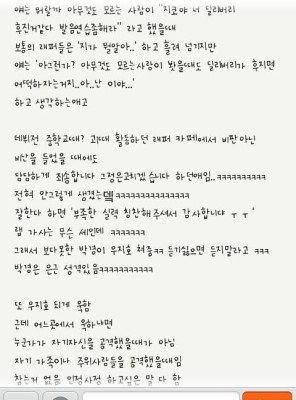 얘는 뭐랄까 아무것도 모르는 사람이 "지코야 너 딜리버리
후진거같다 발음연습좀해라" 라고 했을때
보통의 래퍼들은 '지가 뭘알아..' 하고 흘려 넘기지만
얘는 '아그런가? 아무것도 모르는사람이 봤을때도 딜리버리가 후지면
어떡하자는거지..아..난 이야...'
하고 생각하는애고

데뷔전 중학교때? 고1때 활동하던 래퍼 카페에서 비판아닌
비난을 들었을 때에도
담담하게 죄송합니다 그점은고치겠습니다 하던애임..ㅋㅋㅋㅋㅋㅋㅋㅋㅋㅋ
전혀 안그렇게 생겼는뎈ㅋㅋㅋㅋㅋㅋㅋㅋㅋㅋㅋㅋㅋㅋㅋ
잘한다 하면 '부족한 실력 칭찬해주셔서 감사합니다 ㅜㅜ'
랩 가사는 무슨 세인데 ㅋㅋㅋㅋㅋㅋㅋ
그래서 보다못한 박경이 우지호 쳐줌ㅋㅋ 듣기싫으면 듣지말라고 ㅋㅋㅋ
박경은 은근 성격있음ㅋㅋㅋㅋㅋㅋㅋㅋㅋㅋㅋ

또 우지호 되게 욱함
근데 어느곳에서 욱하냐면
누군가가 자기자신을 공격했을때가 아님
자기 가족이나 주위사람들을 공격했을때임
참는거 없음 인정사정 하고싶은 말 다 함